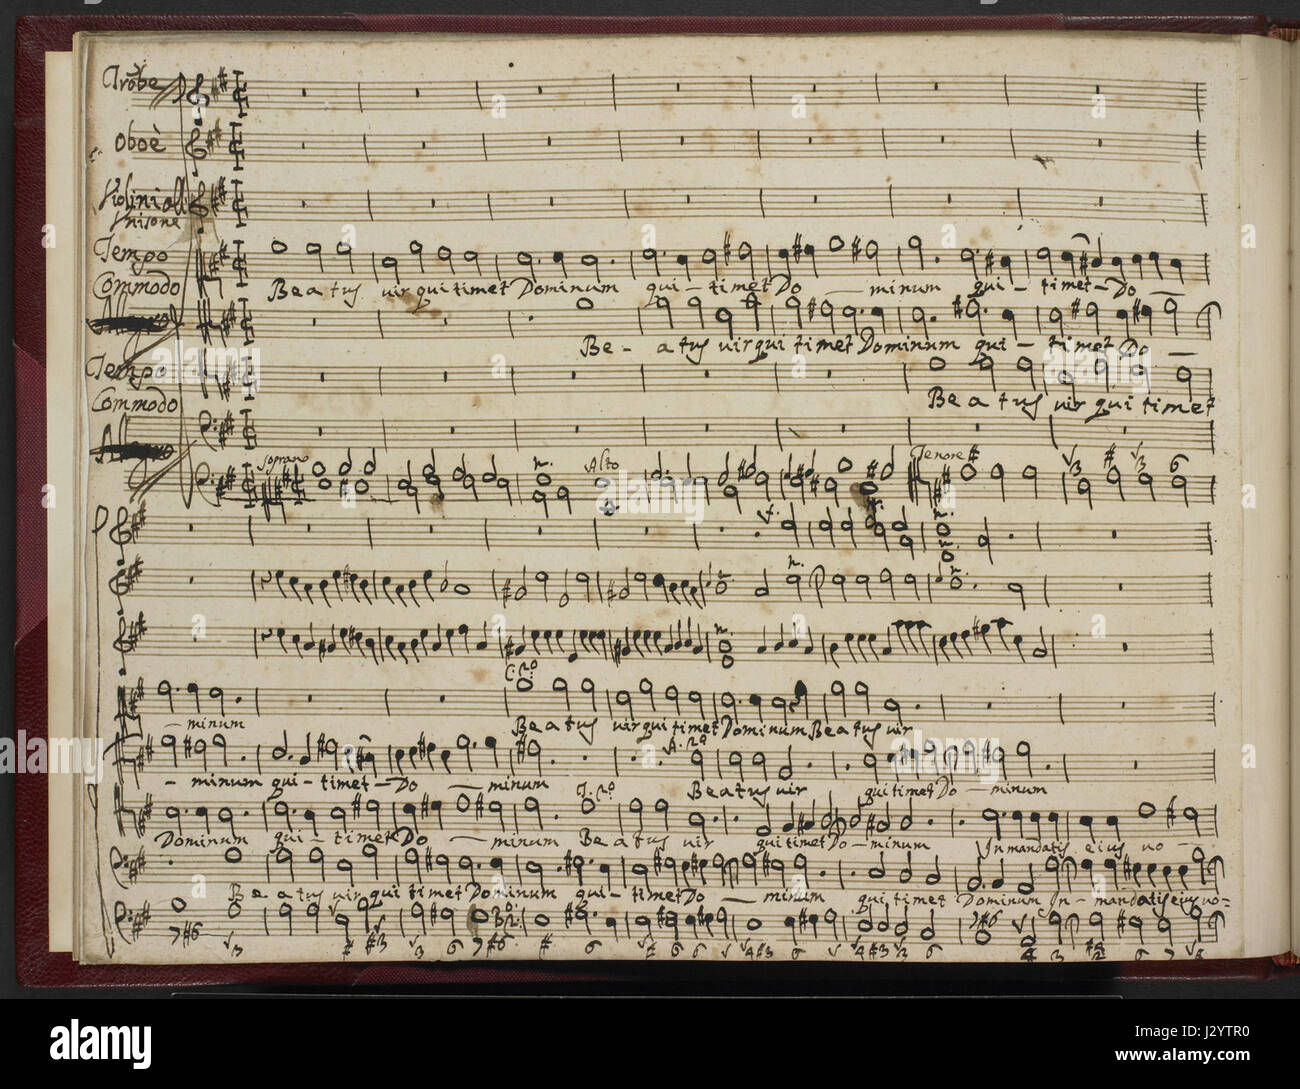 Trõbe
oboè
Violini all
Vnisone
Tempo
Commodo
Beatus vir qui timet Dominum qui - timet Do minum qui - timet - Do
Allegro
Be - atus vir qui timet Dominum qui - timet Do
Tempo
Commodo
Beatus vir qui timet
Allegro
Soprano Alto Tenore
C. 2º
minum Beatus vir qui timet Dominum Beatus vir
A. 2º
- minum qui - timet - Do minum Beatus vir qui timet Do - minum
T. 2º
Dominum qui - timet Do minum Beatus vir qui timet Do - minum In mandatis eius vo -
Beatus vir qui timet Dominum qui - timet Do minum qui timet Dominum In - mandatis eius vo -
B. 2º
7 #6
alamy
alamy
Image ID: J2YTR0
www.alamy.com